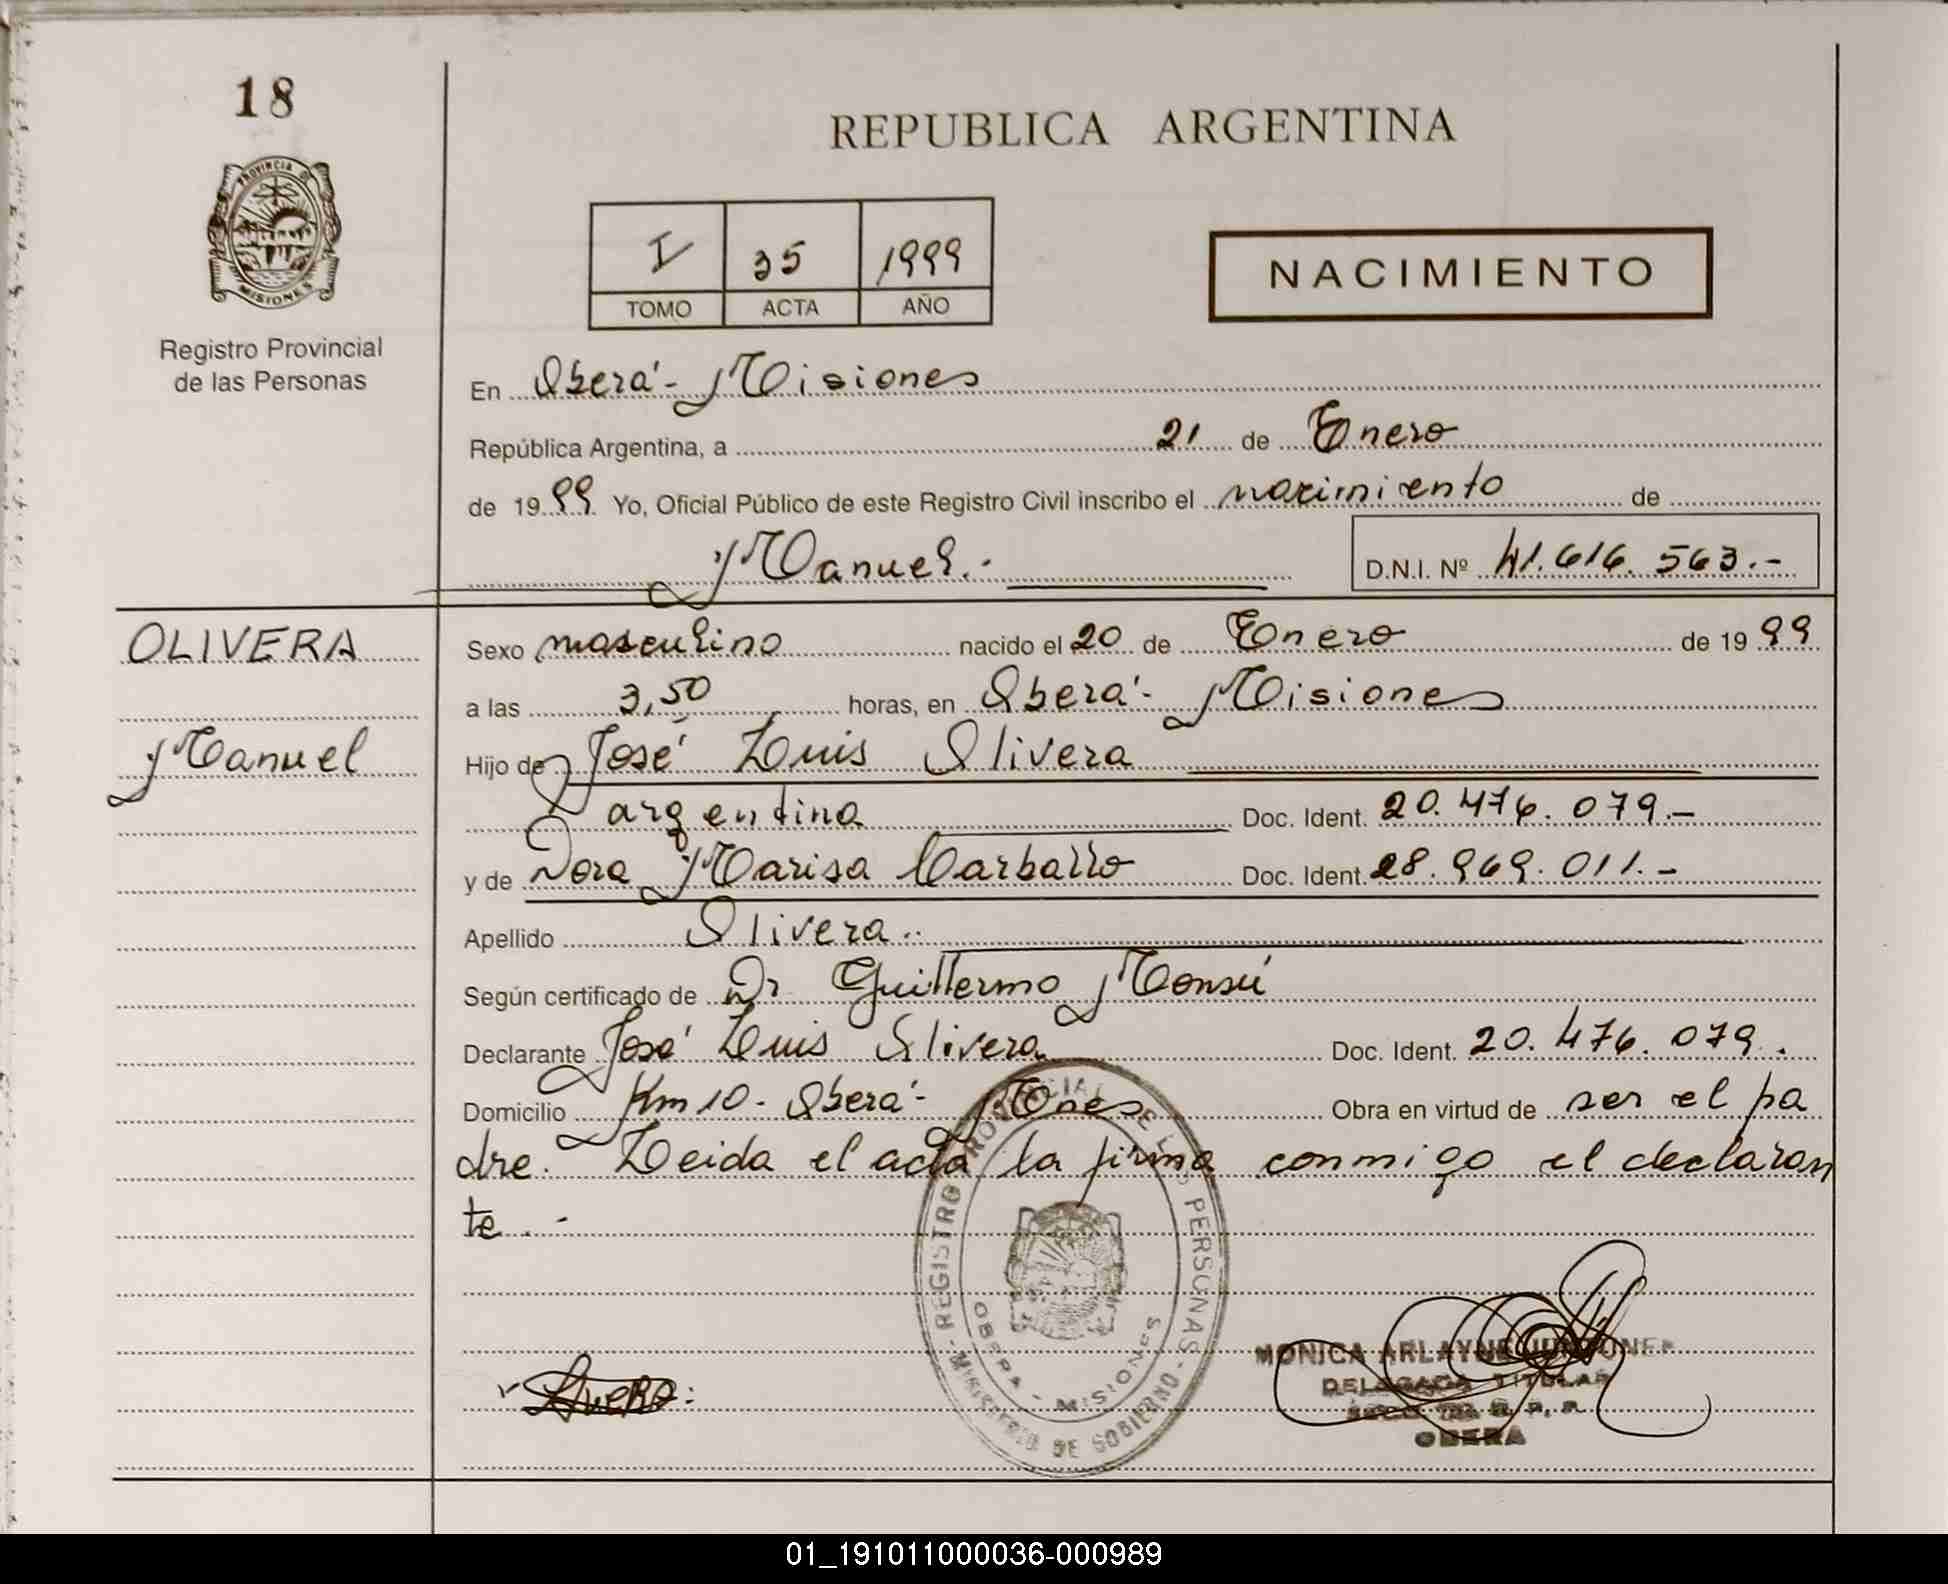 18
REPUBLICA ARGENTINA
PROVINCIA DE
MISIONES
I 35 1999
TOMO ACTA AÑO
NACIMIENTO
Registro Provincial
de las Personas
En Oberá - Misiones
República Argentina, a 21 de Enero
de 1999 Yo, Oficial Público de este Registro Civil inscribo el nacimiento de
Manuel.-
D.N.I. Nº 41.616.563.-
OLIVERA
Manuel
Sexo masculino nacido el 20 de Enero de 1999
a las 3,50 horas, en Oberá - Misiones
Hijo de José Luis Olivera
argentina Doc. Ident. 20.476.079.-
y de Dora Marisa Carballo Doc. Ident. 28.969.011.-
Apellido Olivera.-
Según certificado de Dr Guillermo Monsú
Declarante José Luis Olivera Doc. Ident. 20.476.079.
Domicilio Km 10 - Oberá - Mnes Obra en virtud de ser el pa
dre. Leida el acta la firma conmigo el declaran
te.-
REGISTRO PROVINCIAL DE LAS PERSONAS - MINISTERIO DE GOBIERNO -
OBERA - MISIONES
MONICA
DELEGADA TITULAR
R. P. P.
OBERA
01_191011000036-000989